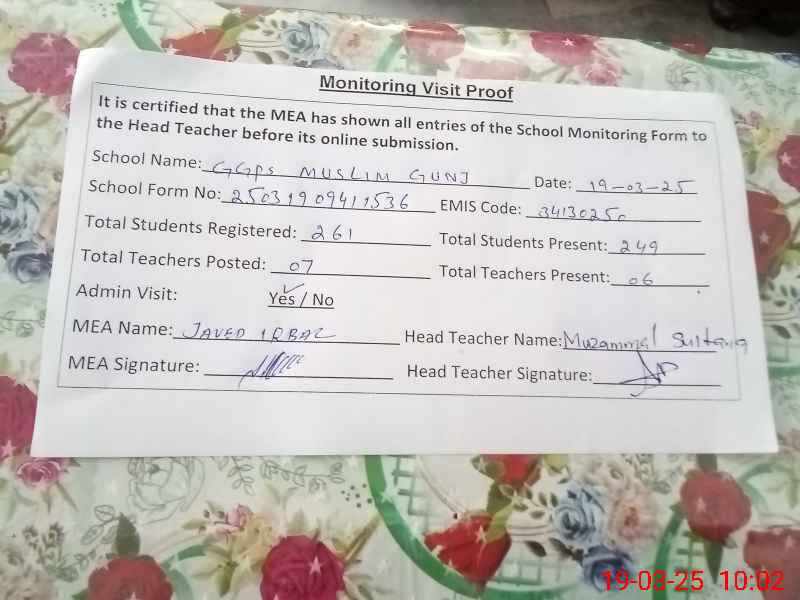 Monitoring Visit Proof
It is certified that the MEA has shown all entries of the School Monitoring Form to
the Head Teacher before its online submission.
School Name: GGPS MUSLIM GUNJ Date: 19-03-25
School Form No: 25031909411536 EMIS Code: 34130250
Total Students Registered: 261 Total Students Present: 249
Total Teachers Posted: 07 Total Teachers Present: 06
Admin Visit: Yes / No
MEA Name: JAVED IQBAL Head Teacher Name: Muzammal Sultana
MEA Signature: Head Teacher Signature:
19-03-25 10:02